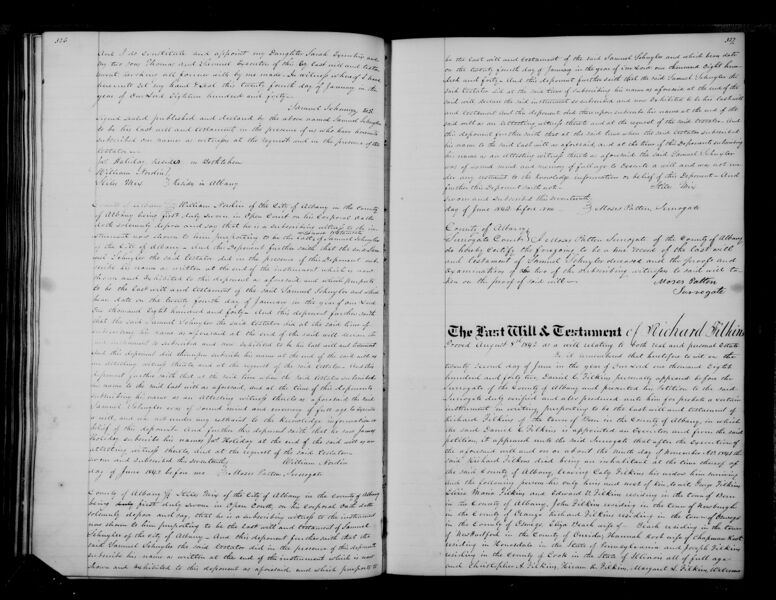 326
And I do constitute and appoint my Daughter Sarah Executrix and
my two sons Thomas and Samuel Executors of this my last will and testa-
ment, revoking all former wills by me made. In witness whereof I have
hereunto set my hand & seal this twenty fourth day of January in the
year of our Lord Eighteen hundred and forty.
Samuel Schuyler
Signed sealed published and declared by the above named Samuel Schuyler
to be his last will and testament in the presence of us who have hereunto
subscribed our names as witnesses at the request and in the presence of the
testator
Holiday, resides in
William
Stiles Mix Reside in Albany
County of Albany William of the City of Albany in the County
of Albany being first duly sworn in Open Court on his Corporal Oath
doth solemnly depose and say that he is a subscribing witness to the in-
strument now shown to him purporting to be the last will and testament of Samuel Schuyler
of the City of Albany. And this deponent further saith that the said Sam-
uel Schuyler the said testator did in the presence of this Deponent sub-
scribe his name as written at the end of the instrument which is now
shown and exhibited to this deponent as aforesaid and which purports
to be the last will and testament of the said Samuel Schuyler and which
bears date on the twenty fourth day of January in the year of our Lord
One thousand Eight hundred and forty. And this deponent further saith
that the said Samuel Schuyler the said testator did at the said time of
subscribing his name as aforesaid at the end of the said will declare the
said instrument so subscribed and now exhibited to be his last will and testament
And this deponent did thereupon subscribe his name at the end of the said will as
an attesting witness thereto at the request of the said testator. And this
deponent further saith that at the said time when the said testator subscribed
his name to the said last will as aforesaid, and at the time of this deponents
subscribing his name as an attesting witness thereto as aforesaid the said
Samuel Schuyler was of sound mind and memory of full age to execute
a will, and was not under any restraint to the knowledge information or
belief of this deponent. And further this deponent saith that he saw
Holiday subscribe his name Holiday at the end of the said will as an
attesting witness thereto, and at the request of the said testator
Sworn and Subscribed this seventeenth William
day of June 1842 before me Moses Patten Surrogate
County of Albany Stiles Mix of the City of Albany in the County of Albany
being first duly sworn in Open Court, on his Corporal Oath doth
solemnly depose and say, that he is a subscribing witness to the instrument
now shown to him purporting to be the last will and testament of Samuel
Schuyler of the City of Albany. And this deponent further saith that the
said Samuel Schuyler the said testator did in the presence of this deponent
subscribe his name as written at the end of the instrument which is now
shown and exhibited to this deponent as aforesaid and which purports to
327
be the last will and testament of the said Samuel Schuyler and which bears date
on the twenty fourth day of January in the year of our Lord one thousand Eight hun-
dred and forty. And this deponent further saith that the said Samuel Schuyler the
said testator did at the said time of subscribing his name as aforesaid at the end of the
said will declare the said instrument so subscribed and now exhibited to be his last will
and testament And this deponent did thereupon subscribe his name at the end of the
said will as an attesting witness thereto and at the request of the said testator. And
this deponent further saith that at the said time when the said testator subscribed
his name to the said last will as aforesaid, and at the time of this Deponents subscribing
his name as an attesting witness thereto as aforesaid the said Samuel Schuyler
was of sound mind and memory of full age to execute a will and was not un-
der any restraint to the knowledge information or belief of this Deponent. And
further this Deponent saith not. Stiles Mix
Sworn and Subscribed this seventeenth
day of June 1842 before me Moses Patten, Surrogate
County of Albany
Surrogate Court I Moses Patten Surrogate of the County of Albany
do hereby Certify the foregoing to be a true record of the last will
and testament of Samuel Schuyler deceased and the proofs and
examination of two of the subscribing witnesses to said will ta-
ken on the proof of said will Moses Patten
Surrogate
The Last Will & Testament of Richard Filkins
Proved August 8th 1842 as a will relating to both real and personal Estate
Be it remembered that heretofore to wit on the
twenty second day of June in the year of our Lord one thousand Eight
hundred and forty two Daniel L Filkins personally appeared before the
Surrogate of the County of Albany and presented his Petition to the said
Surrogate duly verified and also produced unto him for probate a certain
instrument in writing, purporting to be the last will and testament of
Richard Filkins of the town of Bern in the County of Albany, in which
the said Daniel L Filkins is appointed an Executor and from the said
petition it appeared unto the said Surrogate that after the Execution of
the aforesaid will and on or about the ninth day of November 1841 the
said Richard Filkins died being an inhabitant at the time thereof of
the said County of Albany, leaving Caty Filkins his widow him surviving
and the following person his only heirs and next of kin, to wit Filkins
Maria Filkins and Edward Filkins residing in the town of Bern
in the County of Albany, John Filkins residing in the town of Newburgh
in the County of Orange Richard Filkins residing in the town of
in the County of Eliza Beach wife of Beach residing in the town
of New Hartford in the County of Oneida, Hannah wife of Chapman
residing in Honesdale in the State of Pennsylvania and Joseph Filkins
residing in the County of Cook in the State of Illinois all of full age
and Christopher A. Filkins, Hiram Filkins, Margaret S. Filkins,